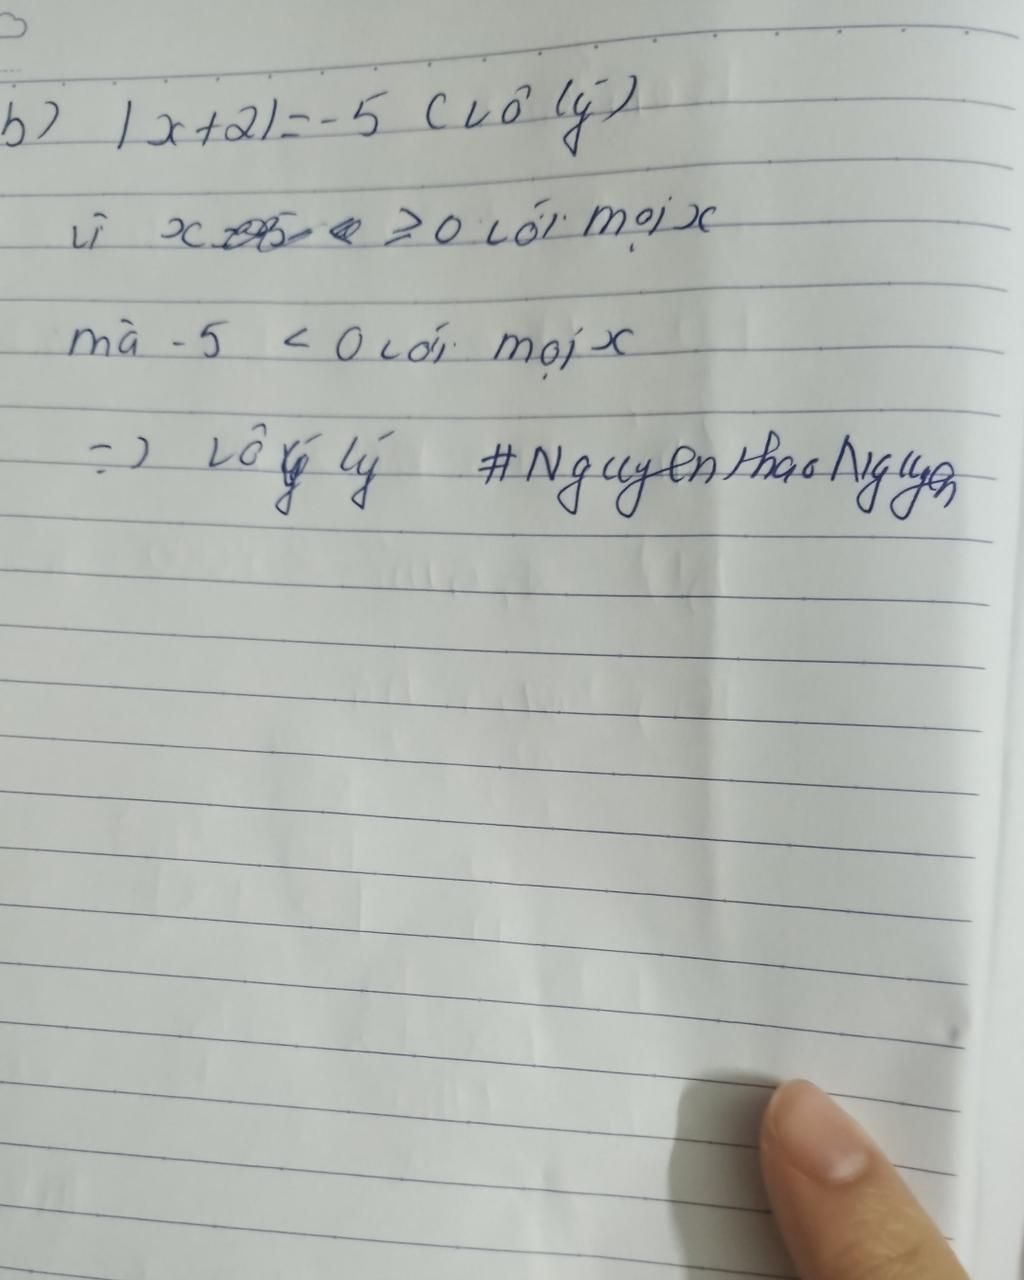 b) |x+2|=-5 (vô lý)
vì x ≥0 với mọi x
mà -5 < 0 với mọi x
=) vô lý lý #NguyenthaoNguyen